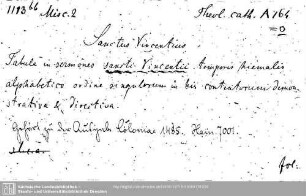 1113 66 Misc. 2 Theol. cath. A 164
Sanctus Vincentius
Tabula in sermones sancti Vincentii temporis hiemalis
alphabetico ordine singulorum in his contentorum demon-
strativa & directiva.
Gehört zu der Ausgabe Coloniae 1485. Hain 7001.
fol.
Sächsische Landesbibliothek -
Staats- und Universitätsbibliothek Dresden